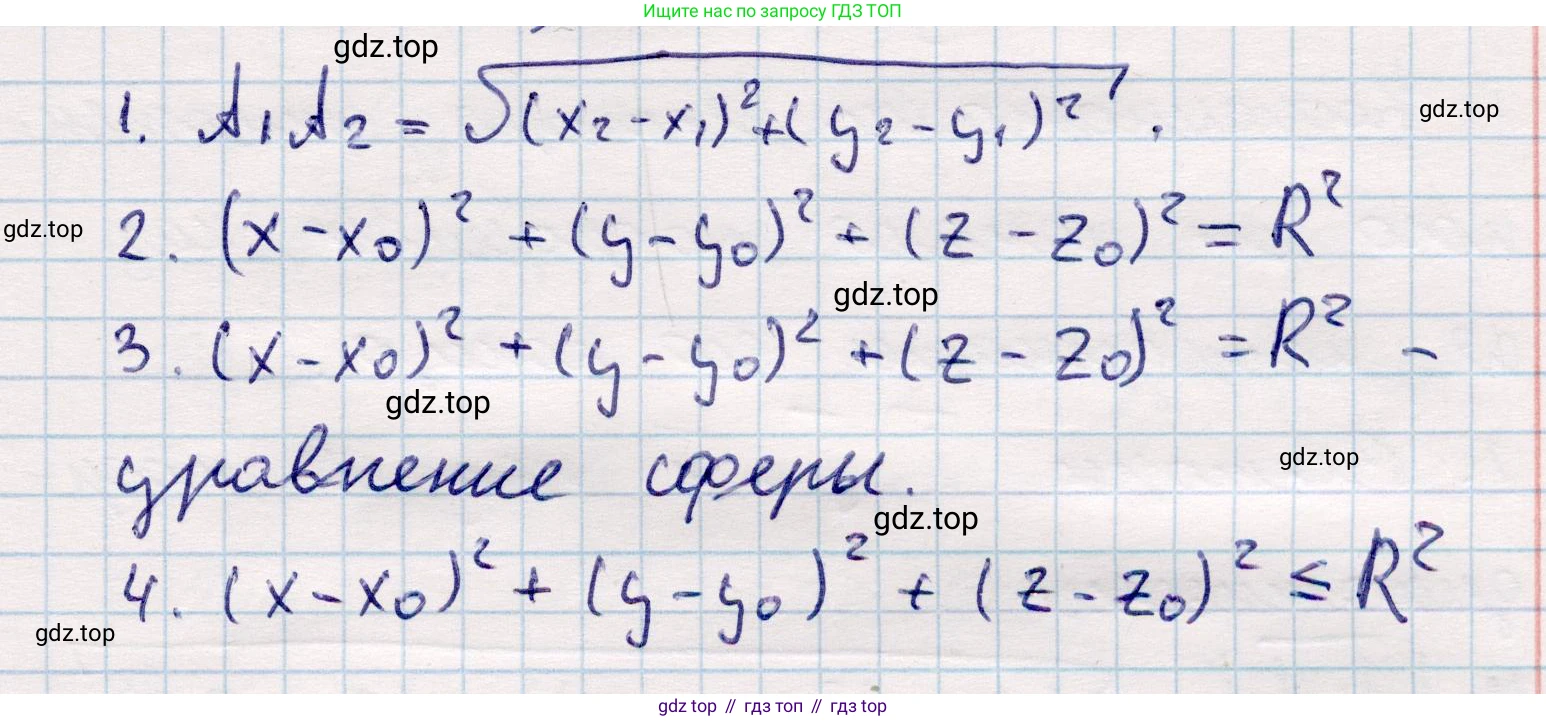 Ищите нас по запросу ГДЗ ТОП
gdz.top
1. A₁A₂ = √((x₂ - x₁)² + (y₂ - y₁)²) .
gdz.top
2. (x - x₀)² + (y - y₀)² + (z - z₀)² = R²
gdz.top
gdz.top
3. (x - x₀)² + (y - y₀)² + (z - z₀)² = R² -
gdz.top
уравнение сферы.
gdz.top
gdz.top
4. (x - x₀)² + (y - y₀)² + (z - z₀)² ≤ R²
gdz.top
gdz top // гдз топ // гдз top